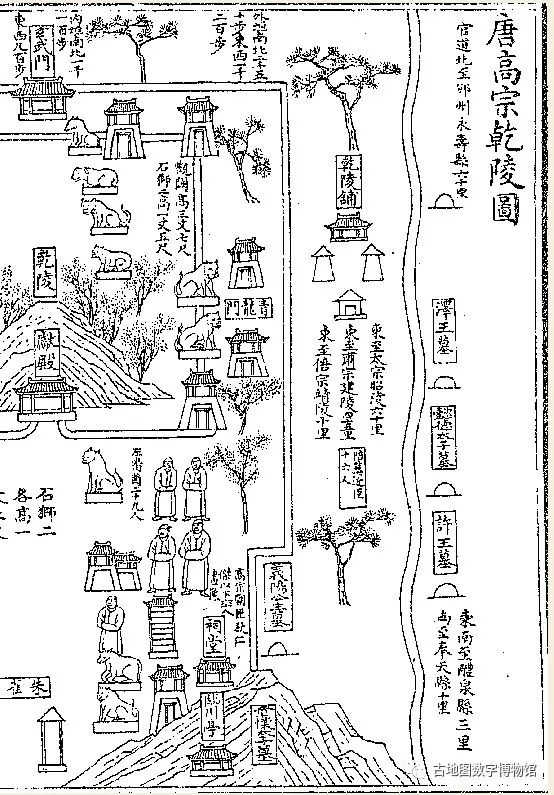 唐高宗乾陵圖
官道北至邠州永壽縣六十里
澤王墓
懿德太子墓
許王墓
東南至醴泉縣三里
西至奉天縣十里
乾陵舖
東至太宗昭陵六十里
東至肅宗建陵
東至僖宗靖陵十里
十六人
義陽公主墓
外城南北一千五
十步東西一千
二百步
內城南北一千
一百步
東西九百步
玄武門
闕高三丈七尺
石獅之高一丈五尺
青龍門
乾陵
獻殿
二十九人
石獅二
各高一
高宗朝臣狄仁
祠堂
臨川亭
懷太子墓
朱雀
古地图数字博物馆